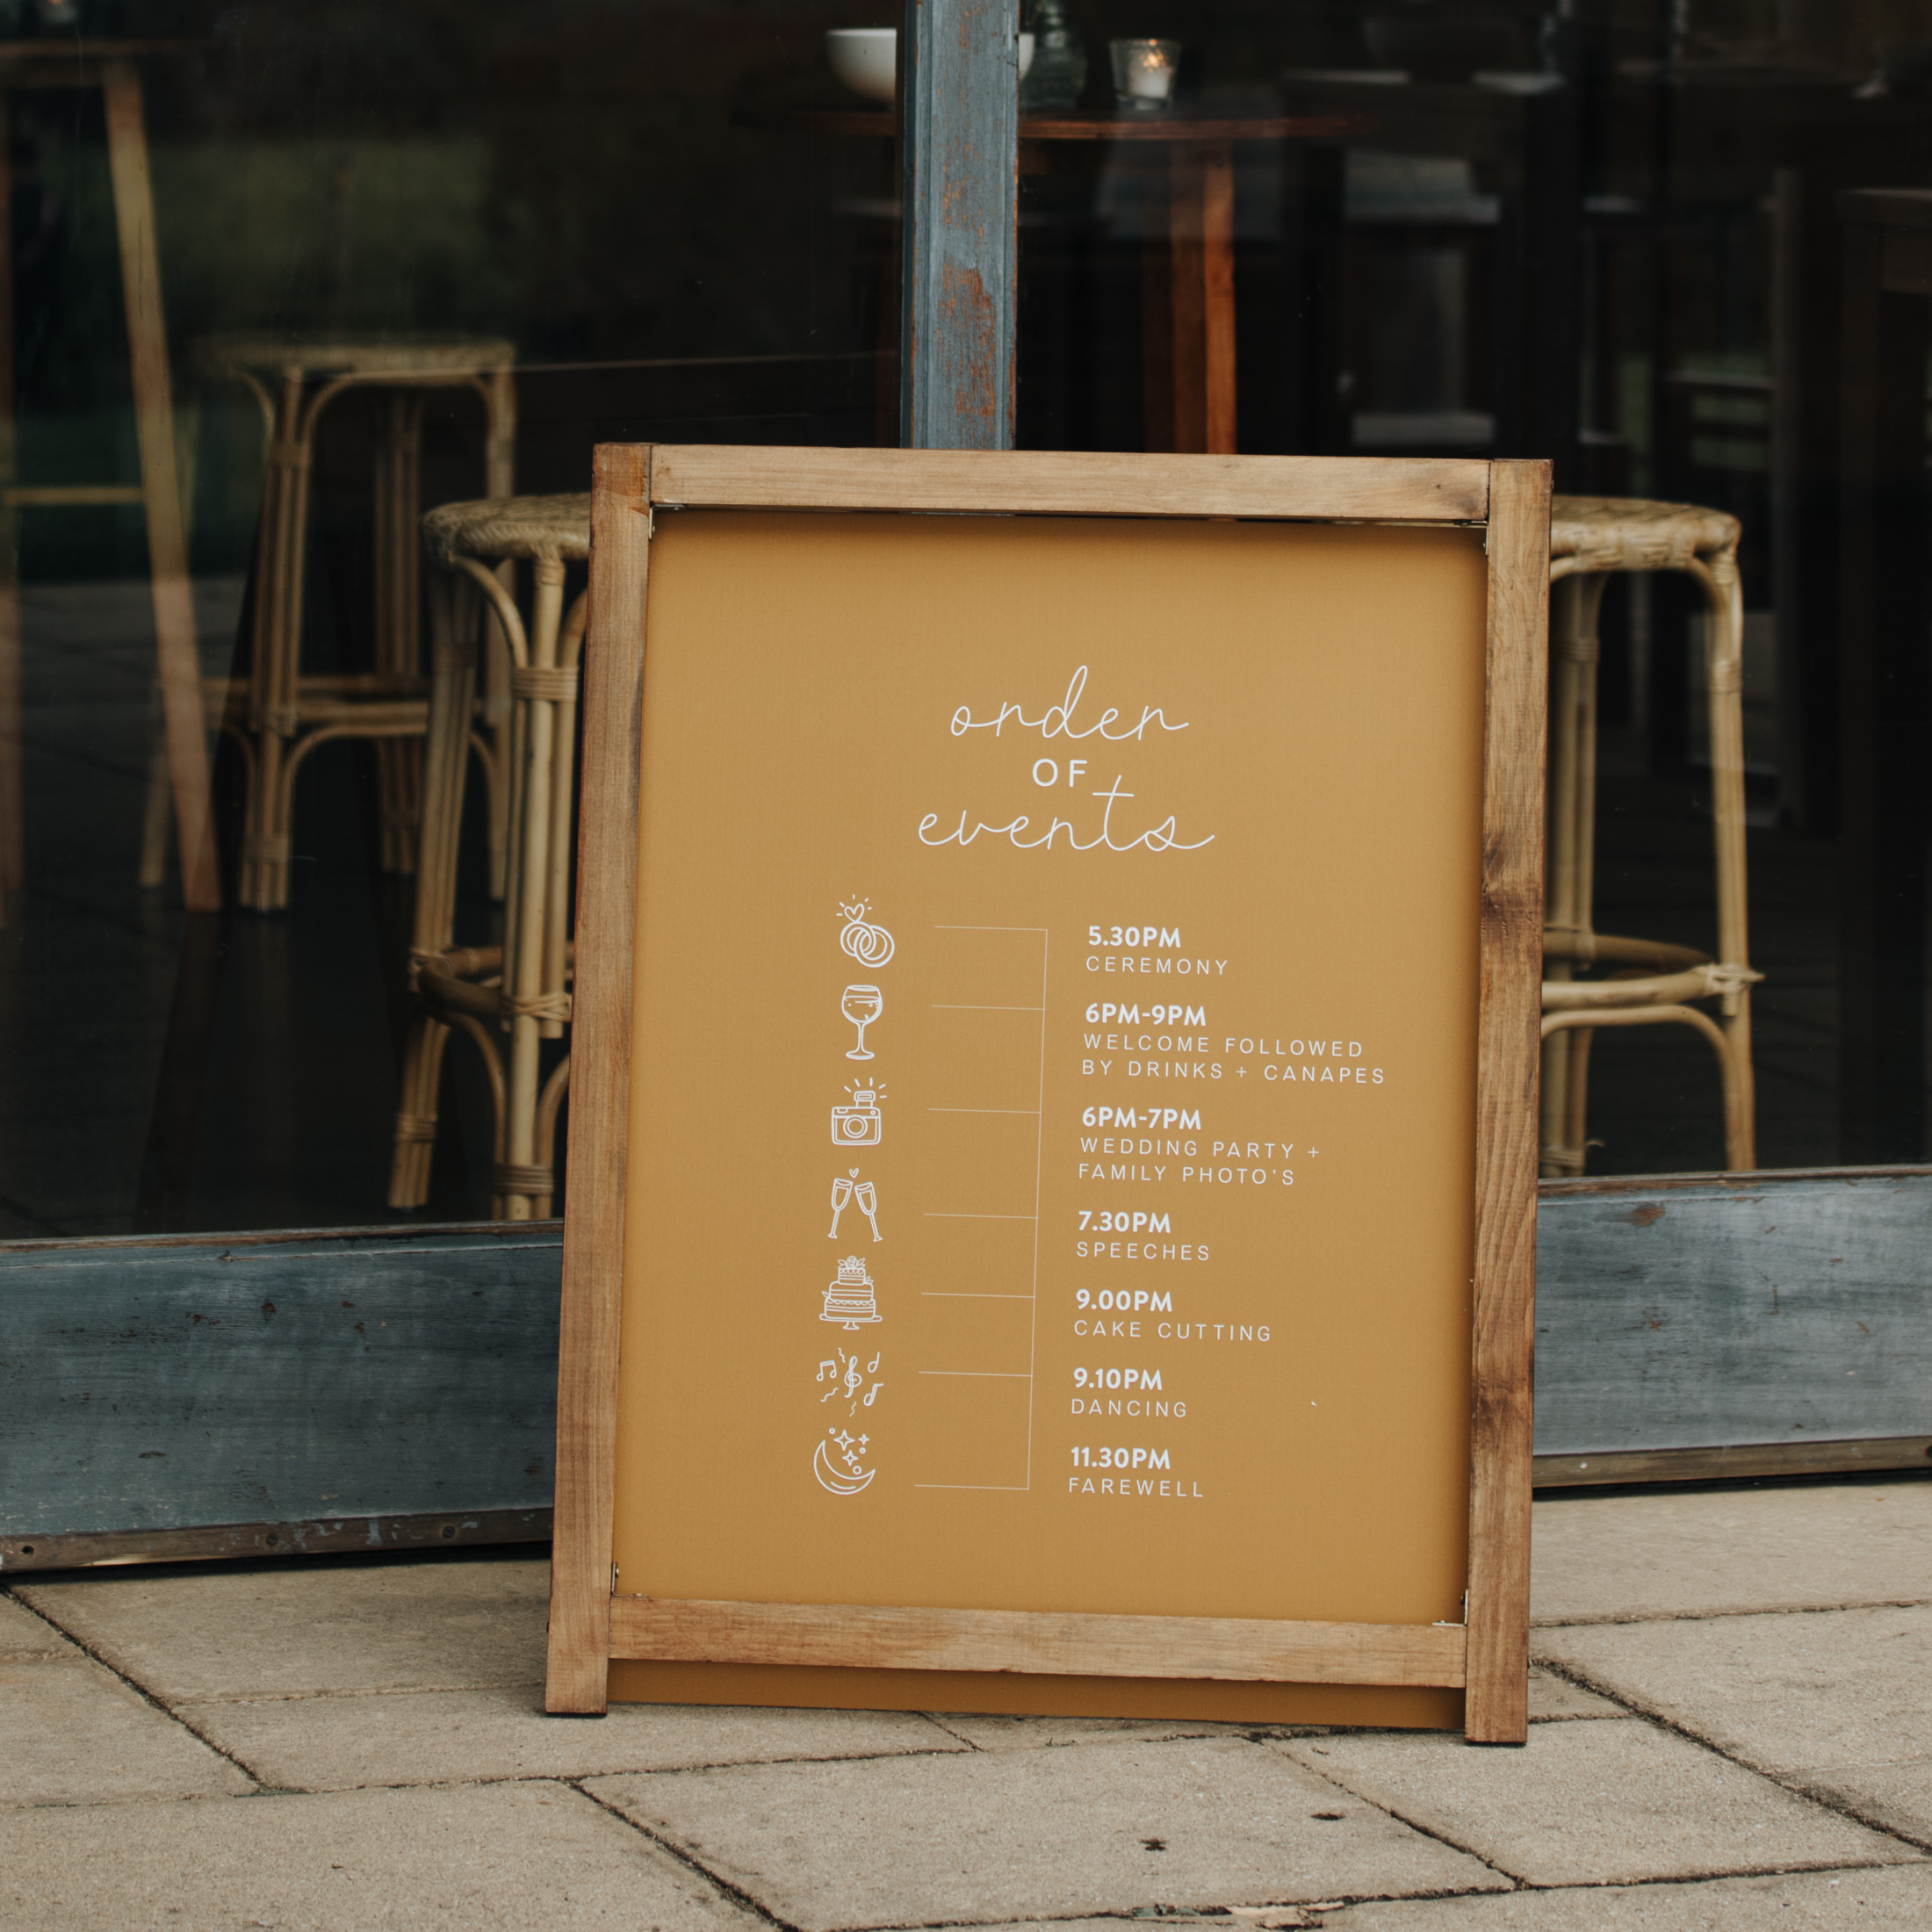 order
OF
events
5.30PM
CEREMONY
6PM-9PM
WELCOME FOLLOWED
BY DRINKS + CANAPES
6PM-7PM
WEDDING PARTY +
FAMILY PHOTO'S
7.30PM
SPEECHES
9.00PM
CAKE CUTTING
9.10PM
DANCING
11.30PM
FAREWELL